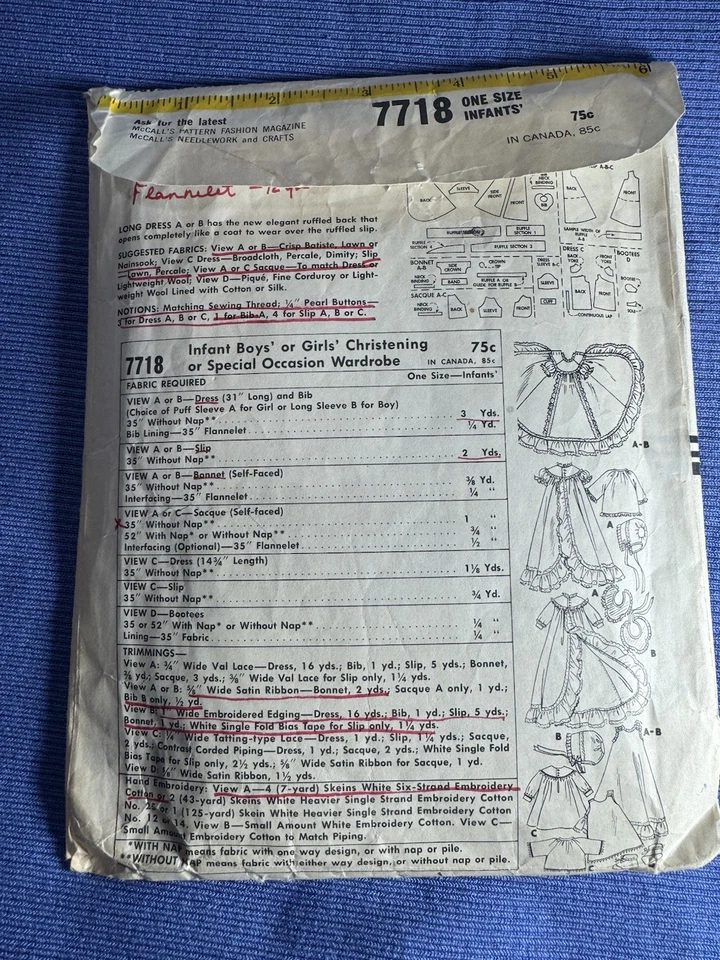 1 2 3 4 5 6
Ask for the latest
McCALL'S PATTERN FASHION MAGAZINE
McCALL'S NEEDLEWORK and CRAFTS
7718 ONE SIZE
INFANTS'
75c
IN CANADA, 85c
Flannelet
LONG DRESS A or B has the new elegant ruffled back that
opens completely like a coat to wear over the ruffled slip.
SUGGESTED FABRICS: View A or B—Crisp Batiste, Lawn or
Nainsook; View C Dress—Broadcloth, Percale, Dimity; Slip
—Lawn, Percale; View A or C Sacque—To match Dress or
Lightweight Wool; View D—Piqué, Fine Corduroy or Light-
weight Wool Lined with Cotton or Silk.
NOTIONS: Matching Sewing Thread; ¼" Pearl Buttons—
3 for Dress A, B or C, 1 for Bib A, 4 for Slip A, B or C.
A-B-C
BACK
SLEEVE
SIDE FRONT
FRONT
NECK BINDING
BIB
BACK
FRONT
RUFFLE SECTION 1
RUFFLE SECTION 3
SAMPLE WIDTH OF RUFFLE
A-B
BONNET
A-B
SIDE CROWN
CROWN TIP
NECK BINDING
BAND
RUFFLE A OR
GUIDE FOR RUFFLE B
DRESS C
BACK YOKE
FRONT YOKE
DRESS SLEEVE B-C
CUFF
BACK
FRONT
CONTINUOUS LAP
BOOTEES
D
BOOTEE
SOLE
SACQUE A-C
NECK BINDING
BACK
SLEEVE
FRONT
7718 Infant Boys' or Girls' Christening
or Special Occasion Wardrobe
75c
IN CANADA, 85c
FABRIC REQUIRED
One Size—Infants'
VIEW A or B—Dress (31" Long) and Bib
(Choice of Puff Sleeve A for Girl or Long Sleeve B for Boy)
35" Without Nap** 3 Yds.
Bib Lining—35" Flannelet ¼ Yd.
VIEW A or B—Slip
35" Without Nap** 2 Yds.
VIEW A or B—Bonnet (Self-Faced)
35" Without Nap** ⅜ Yd.
Interfacing—35" Flannelet ¼ "
VIEW A or C—Sacque (Self-faced)
x 35" Without Nap** 1 "
52" With Nap* or Without Nap** ¾ "
Interfacing (Optional)—35" Flannelet ½ "
VIEW C—Dress (14¾" Length)
35" Without Nap** 1⅛ Yds.
VIEW C—Slip
35" Without Nap** ¾ Yd.
VIEW D—Bootees
35 or 52" With Nap* or Without Nap** ¼ "
Lining—35" Fabric ¼ "
TRIMMINGS—
View A: ¾" Wide Val Lace—Dress, 16 yds.; Bib, 1 yd.; Slip, 5 yds.; Bonnet,
⅞ yd.; Sacque, 3 yds.; ⅝" Wide Val Lace for Slip only, 1¼ yds.
View A or B: ⅝" Wide Satin Ribbon—Bonnet, 2 yds.; Sacque A only, 1 yd.;
Bib B only, ½ yd.
View B: 1" Wide Embroidered Edging—Dress, 16 yds.; Bib, 1 yd.; Slip, 5 yds.;
Bonnet, 1 yd.; White Single Fold Bias Tape for Slip only, 1¼ yds.
View C: ¼" Wide Tatting-type Lace—Dress, 1 yd.; Slip, 1¼ yds.; Sacque,
2 yds.; Contrast Corded Piping—Dress, 1 yd.; Sacque, 2 yds.; White Single Fold
Bias Tape for Slip only, 2½ yds.; ⅝" Wide Satin Ribbon for Sacque, 1 yd.
View D: ⅝" Wide Satin Ribbon, 1½ yds.
Hand Embroidery: View A—4 (7-yard) Skeins White Six-Strand Embroidery
Cotton or 2 (43-yard) Skeins White Heavier Single Strand Embroidery Cotton
No. 26 or 1 (125-yard) Skein White Heavier Single Strand Embroidery Cotton
No. 12 or 14. View B—Small Amount White Embroidery Cotton. View C—
Small Amount Embroidery Cotton to Match Piping.
*WITH NAP means fabric with one way design, or with nap or pile.
**WITHOUT NAP means fabric with either way design, or without nap or pile.
A-B
A
A
B
B
A-B
C
C